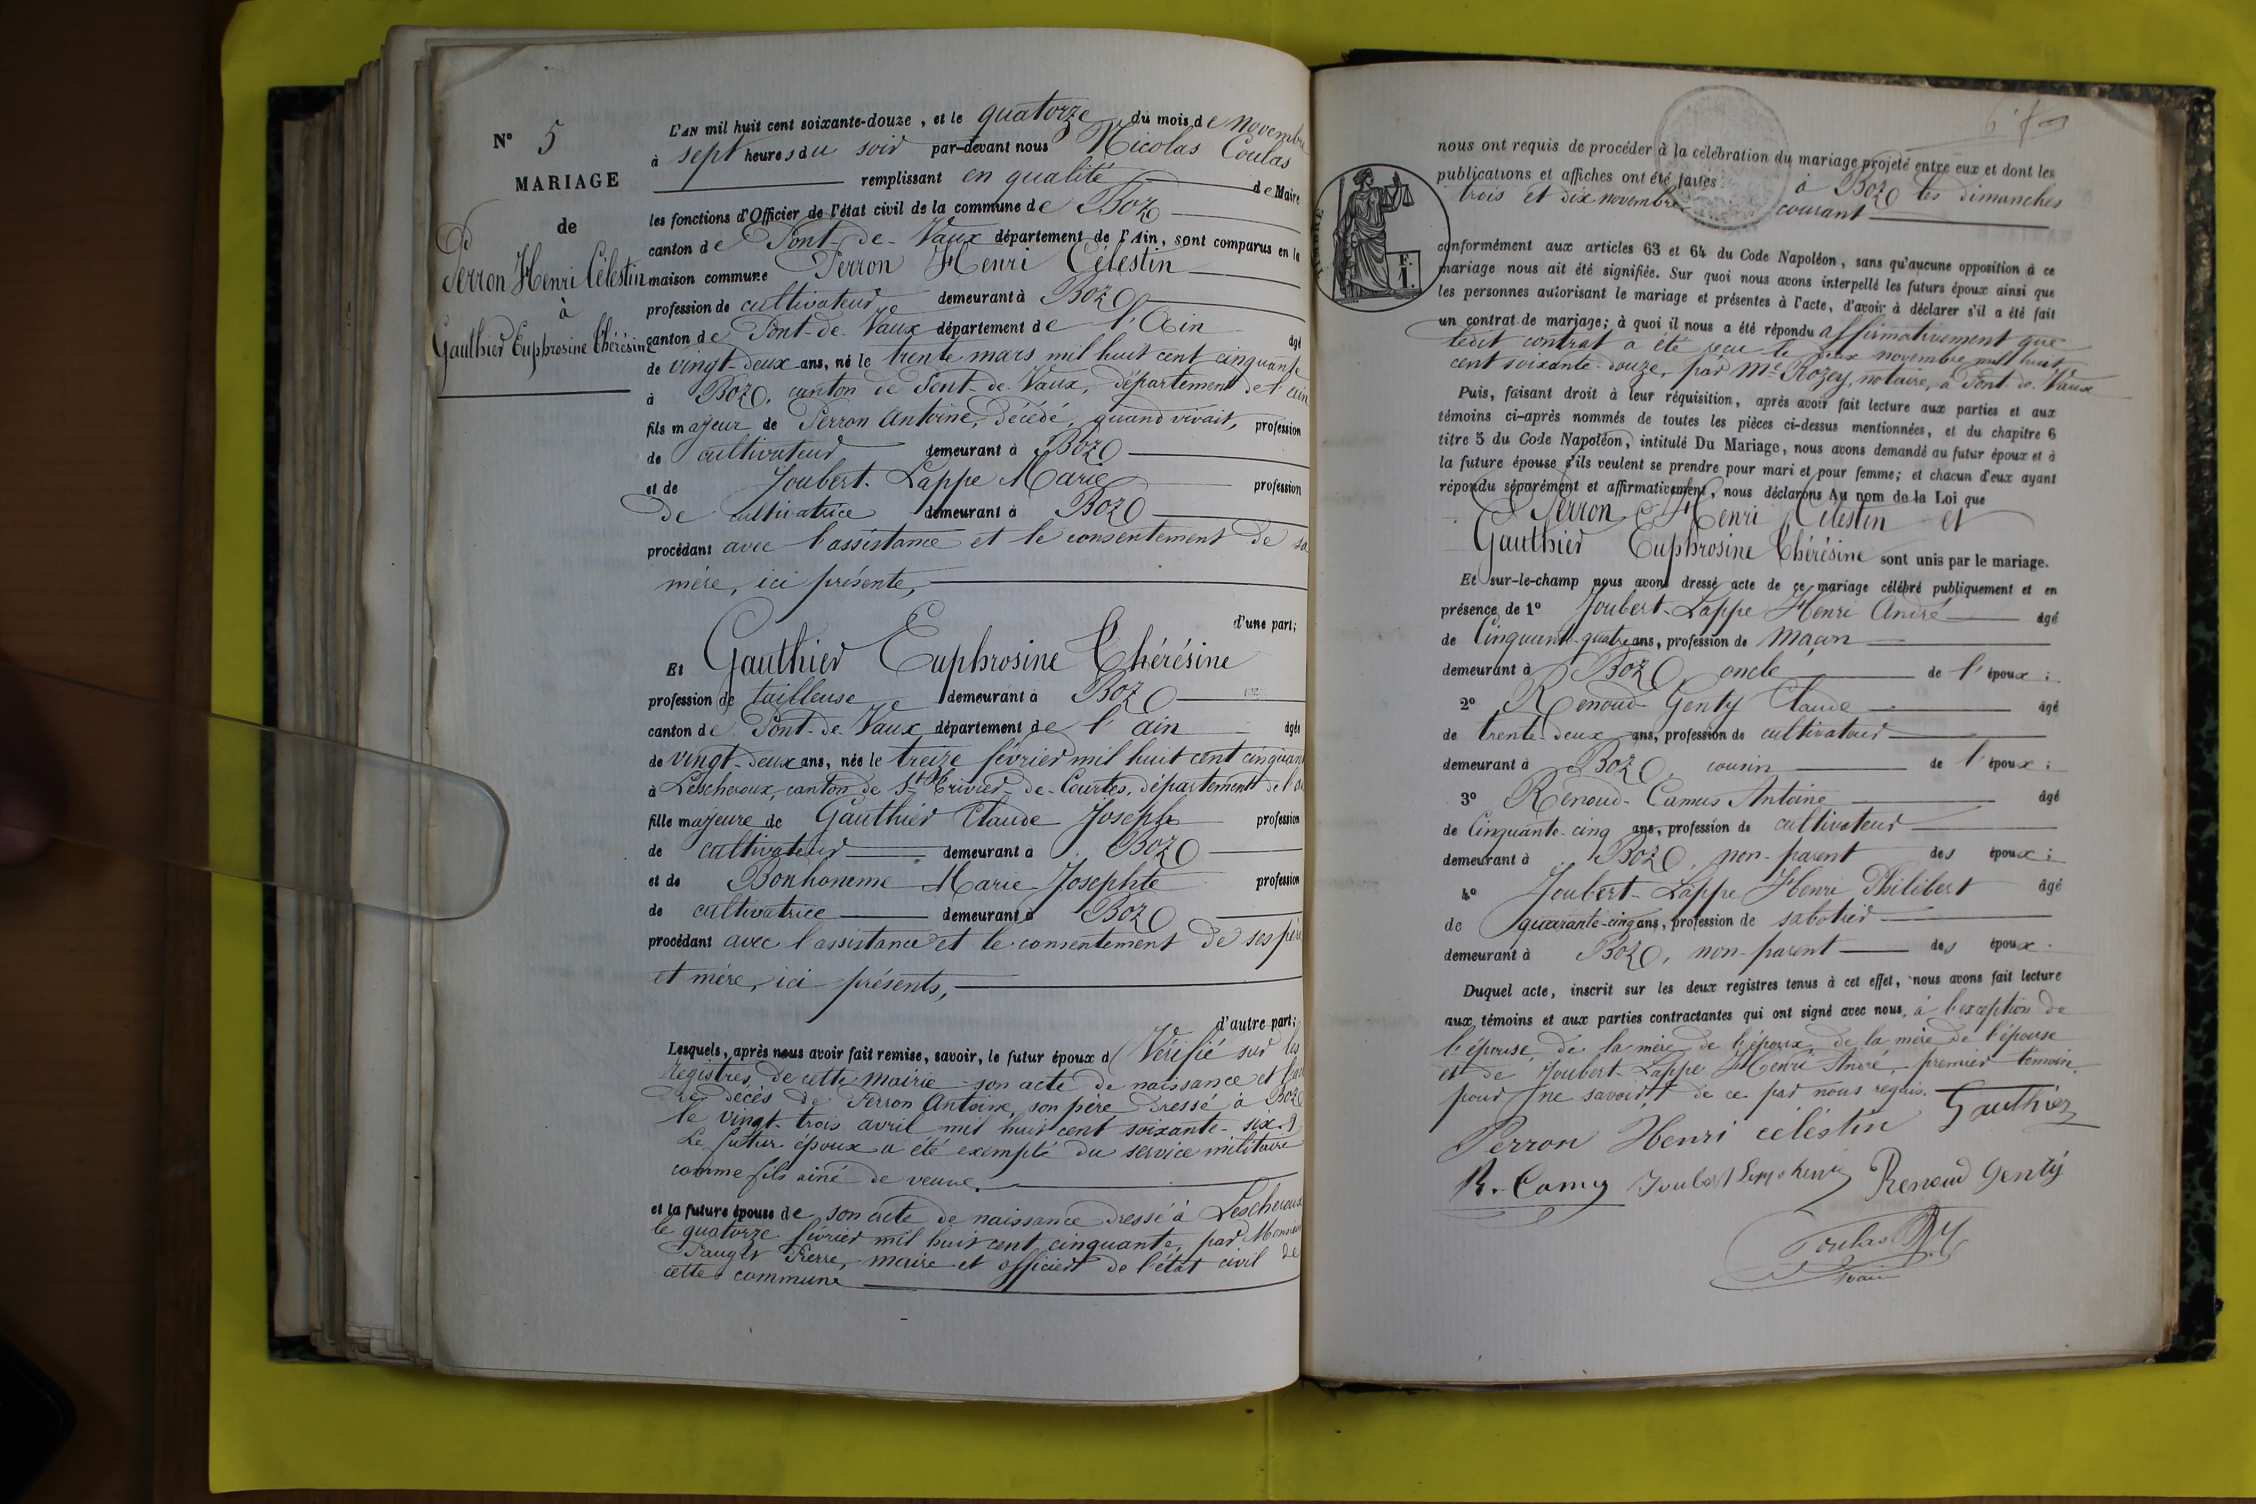 N° 5
MARIAGE
de
Perron Henri Célestin
à
Gauthier Euphrosine Thérésine
L'AN mil huit cent soixante-douze, et le quatorze du mois de novembre
à sept heures du soir par-devant nous Nicolas Coulas
remplissant en qualité de Maire
les fonctions d'Officier de l'état civil de la commune de Boz
canton de Pont-de-Vaux département de l'Ain, sont comparus en la
maison commune Perron Henri Célestin
profession de cultivateur demeurant à Boz
canton de Pont-de-Vaux département de l'Ain âgé
de vingt-deux ans, né le trente mars mil huit cent cinquante
à Boz, canton de Pont-de-Vaux, département de l'ain
fils majeur de Perron Antoine, décédé, quand vivait, profession
de cultivateur demeurant à Boz
et de Joubert-Lappe Marie profession
de cultivatrice demeurant à Boz
procédant avec l'assistance et le consentement de sa
mère, ici présente,
d'une part;
Et Gauthier Euphrosine Thérésine
profession de tailleuse demeurant à Boz
canton de Pont-de-Vaux département de l'ain âgée
de vingt-deux ans, née le treize février mil huit cent cinquante
à Lescheroux, canton de St Trivier-de-Courtes, département de l'ain
fille majeure de Gauthier Claude Joseph profession
de cultivateur demeurant à Boz
et de Bonhomme Marie-Josephte profession
de cultivatrice demeurant à Boz
procédant avec l'assistance et le consentement de ses père
et mère, ici présents,
d'autre part;
Lesquels, après nous avoir fait remise, savoir, le futur époux d Vérifié sur les
registres de cette mairie son acte de naissance et l'acte
de décès de Perron Antoine, son père dressé à Boz
le vingt-trois avril mil huit cent soixante-six.
Le futur époux a été exempté du service militaire
comme fils ainé de veuve.
et la future épouse de son acte de naissance dressé à Lescheroux
le quatorze février mil huit cent cinquante, par Monsieur
Pierre, maire et officier de l'état civil de
cette commune
nous ont requis de procéder à la célébration du mariage projeté entre eux et dont les
publications et affiches ont été faites à Boz les dimanches
trois et dix novembre courant
TIMBRE
F.
1.
conformément aux articles 63 et 64 du Code Napoléon, sans qu'aucune opposition à ce
mariage nous ait été signifiée. Sur quoi nous avons interpellé les futurs époux ainsi que
les personnes autorisant le mariage et présentes à l'acte, d'avoir à déclarer s'il a été fait
un contrat de mariage; à quoi il nous a été répondu affirmativement que
ledit contrat a été reçu le deux novembre mil huit
cent soixante-douze, par Me Rozey, notaire, à Pont-de-Vaux
Puis, faisant droit à leur réquisition, après avoir fait lecture aux parties et aux
témoins ci-après nommés de toutes les pièces ci-dessus mentionnées, et du chapitre 6
titre 5 du Code Napoléon, intitulé Du Mariage, nous avons demandé au futur époux et à
la future épouse s'ils veulent se prendre pour mari et pour femme; et chacun d'eux ayant
répondu séparément et affirmativement, nous déclarons Au nom de la Loi que
Perron Henri Célestin et
Gauthier Euphrosine Thérésine sont unis par le mariage.
Et sur-le-champ nous avons dressé acte de ce mariage célébré publiquement et en
présence de 1° Joubert-Lappe Henri André âgé
de Cinquante-quatre ans, profession de maçon
demeurant à Boz, oncle de l'époux;
2° Renoud-Genty Claude âgé
de trente-deux ans, profession de cultivateur
demeurant à Boz, cousin de l'époux;
3° Renoud-Camus Antoine âgé
de Cinquante-cinq ans, profession de cultivateur
demeurant à Boz, non-parent des époux;
4° Joubert-Lappe Henri Philibert âgé
de quarante-cinq ans, profession de sabotier
demeurant à Boz, non-parent des époux.
Duquel acte, inscrit sur les deux registres tenus à cet effet, nous avons fait lecture
aux témoins et aux parties contractantes qui ont signé avec nous, à l'exception de
l'épouse, de la mère de l'époux, de la mère de l'épouse
et de Joubert-Lappe Henri André, premier témoin,
pour ne savoir de ce par nous requis. Gauthier
Perron Henri célestin
R. Camus Joubert Lappe henri Renoud Genty
Coulas